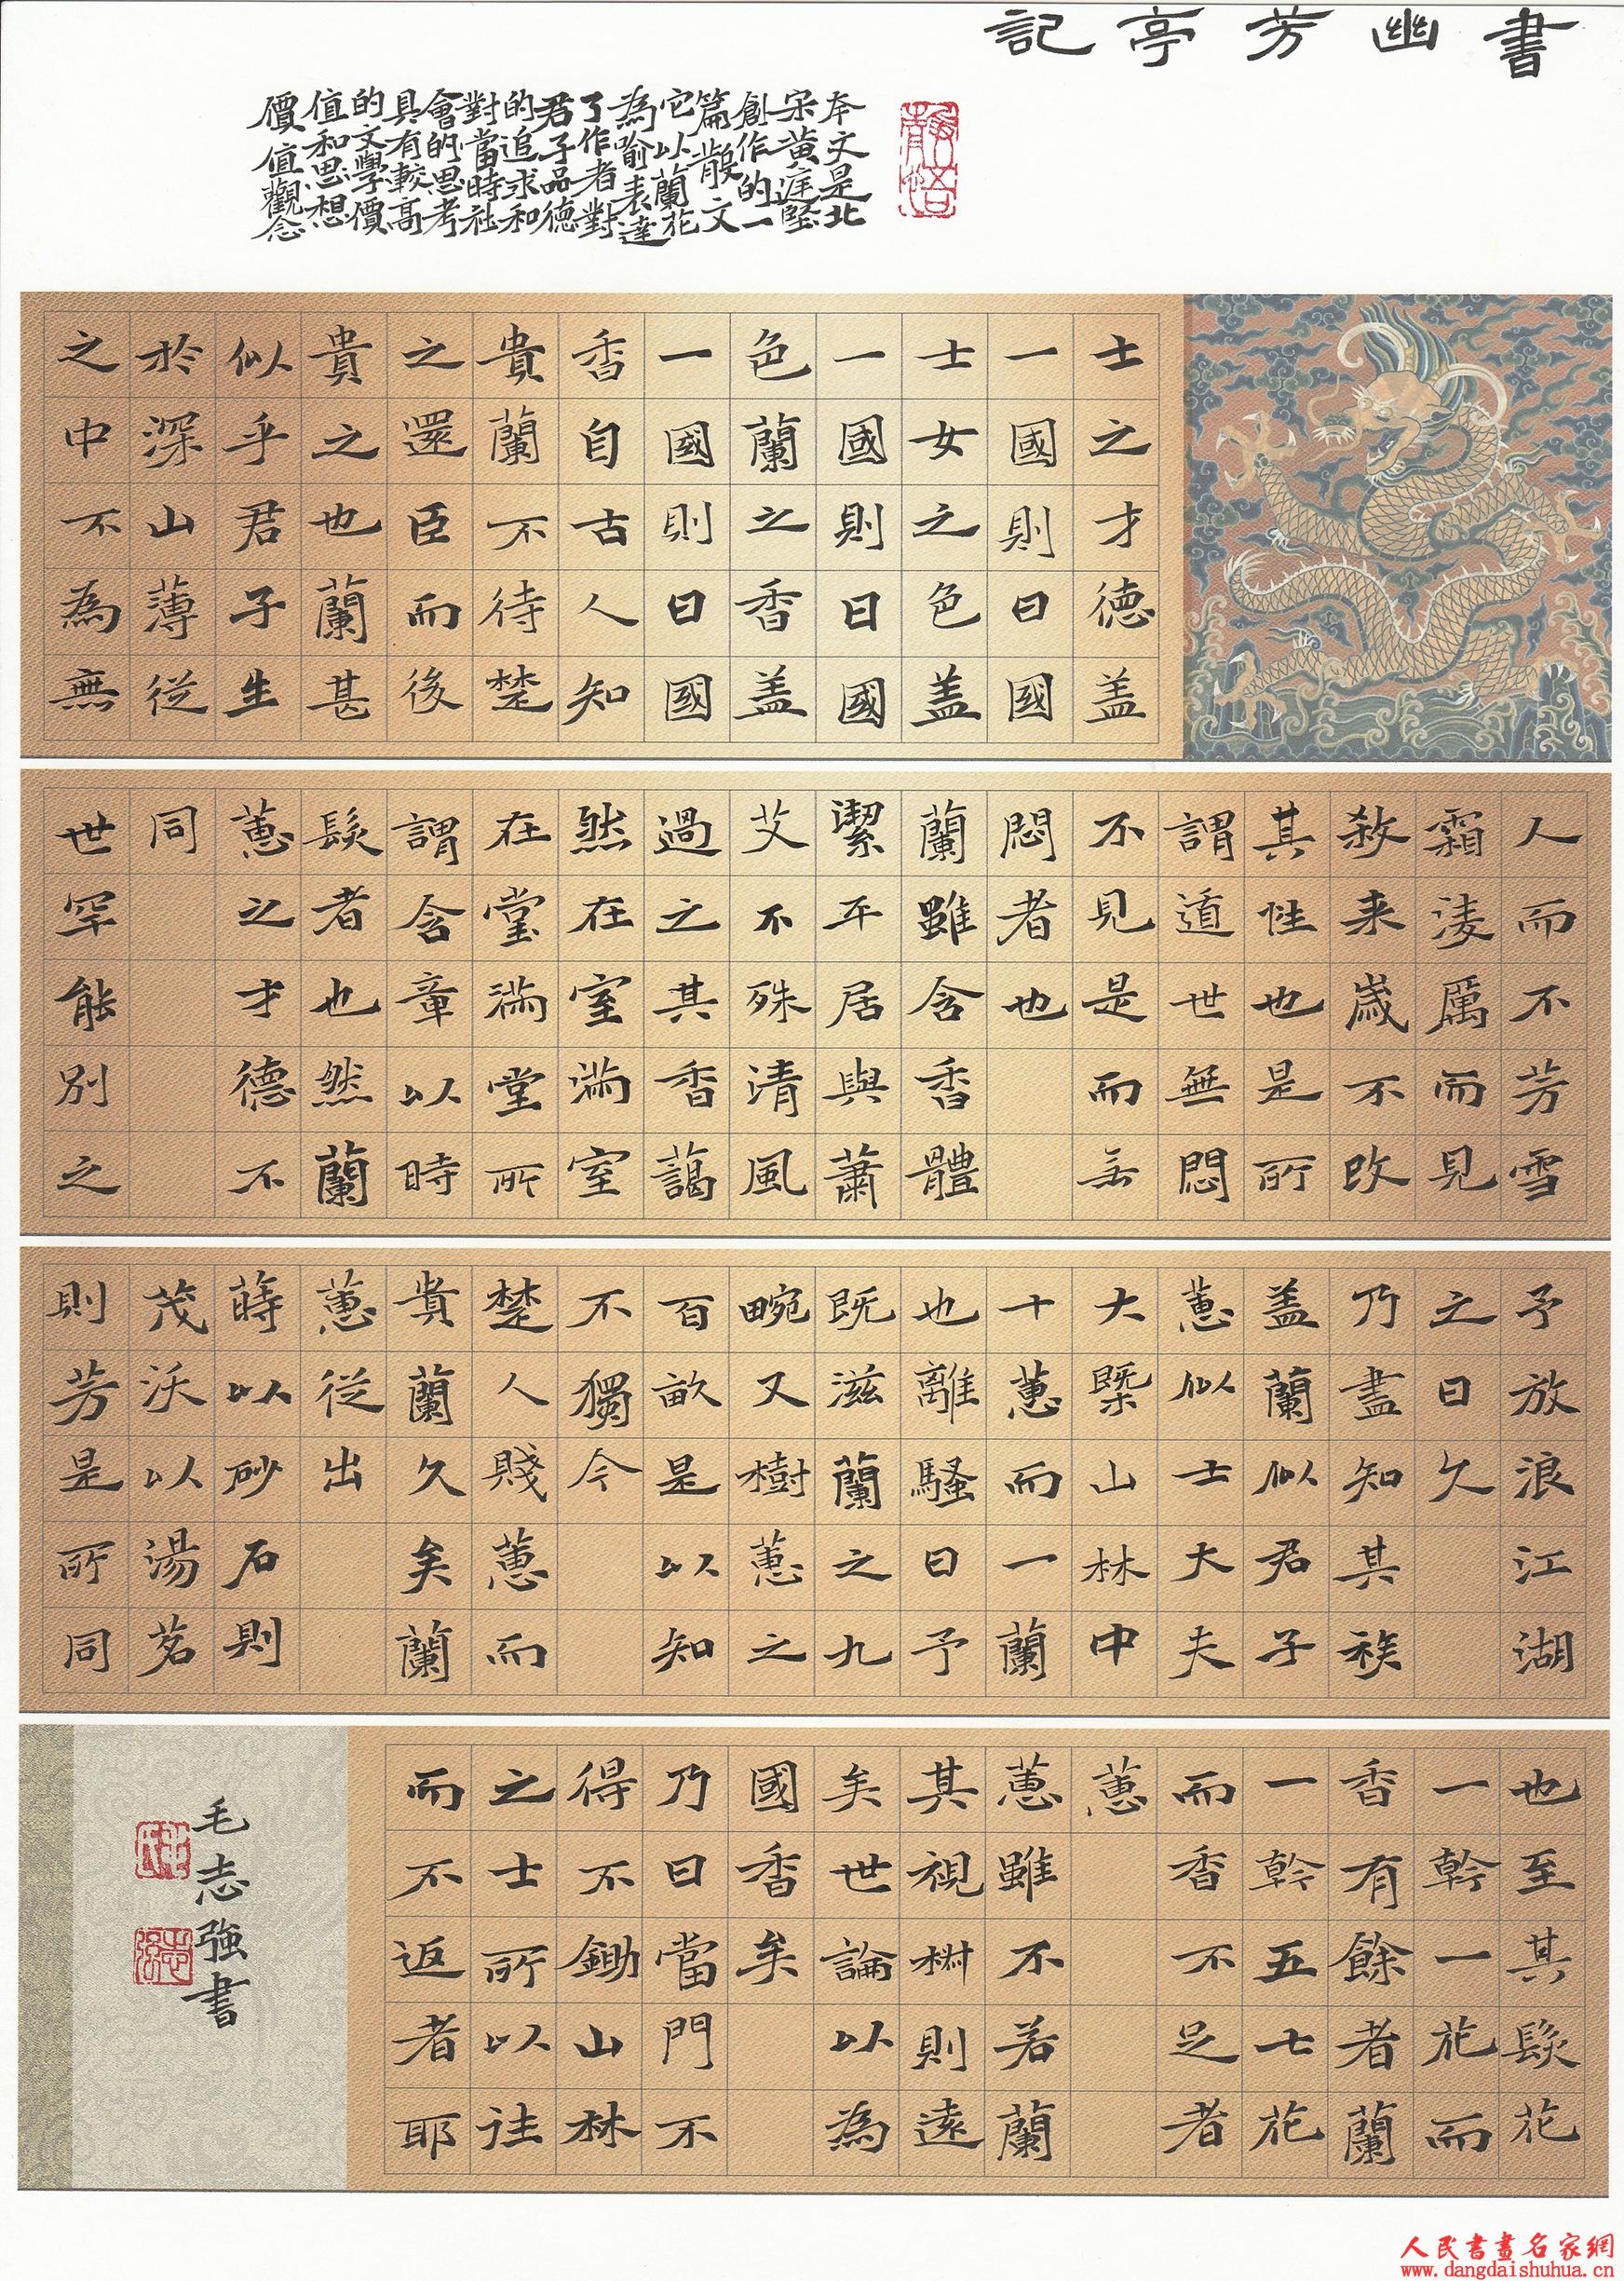 書幽芳亭記
静悟
本文是北
宋黄庭堅
創作的一
篇散文
它以蘭花
為喻表達
了作者對
君子品德
的追求和
對當時社
會的思考
具有較高
的文學價
值和思想
價值觀念
士之才德盖
一國則曰國
士女之色盖
一國則曰國
色蘭之香盖
一國則曰國
香自古人知
貴蘭不待楚
之還臣而後
貴之也蘭甚
似乎君子生
於深山薄從
之中不為無
人而不芳雪
霜凌厲而見
殺来嵗不改
其性也是所
謂遁世無悶
不見是而无
悶者也
蘭雖含香體
潔平居與蕭
艾不殊清風
過之其香藹
然在室滿室
在堂滿堂所
謂含章以時
髮者也然蘭
蕙之才德不
同
世罕能别之
予放浪江湖
之日久
乃盡知其族
盖蘭似君子
蕙似士大夫
大槩山林中
十蕙而一蘭
也離騷曰予
既滋蘭之九
畹又樹蕙之
百畝是以知
不獨今
楚人賤蕙而
貴蘭久矣蘭
蕙從出
蒔以砂石則
茂沃以湯茗
則芳是所同
也至其髮花
一幹一花而
香有餘者蘭
一幹五七花
而香不足者
蕙
蕙雖不若蘭
其視椒則遠
矣世論以為
國香矣
乃曰當門不
得不鋤山林
之士所以往
而不返者耶
毛志強書
毛氏
志強
人民書畫名家網
www.dangdaishuhua.cn